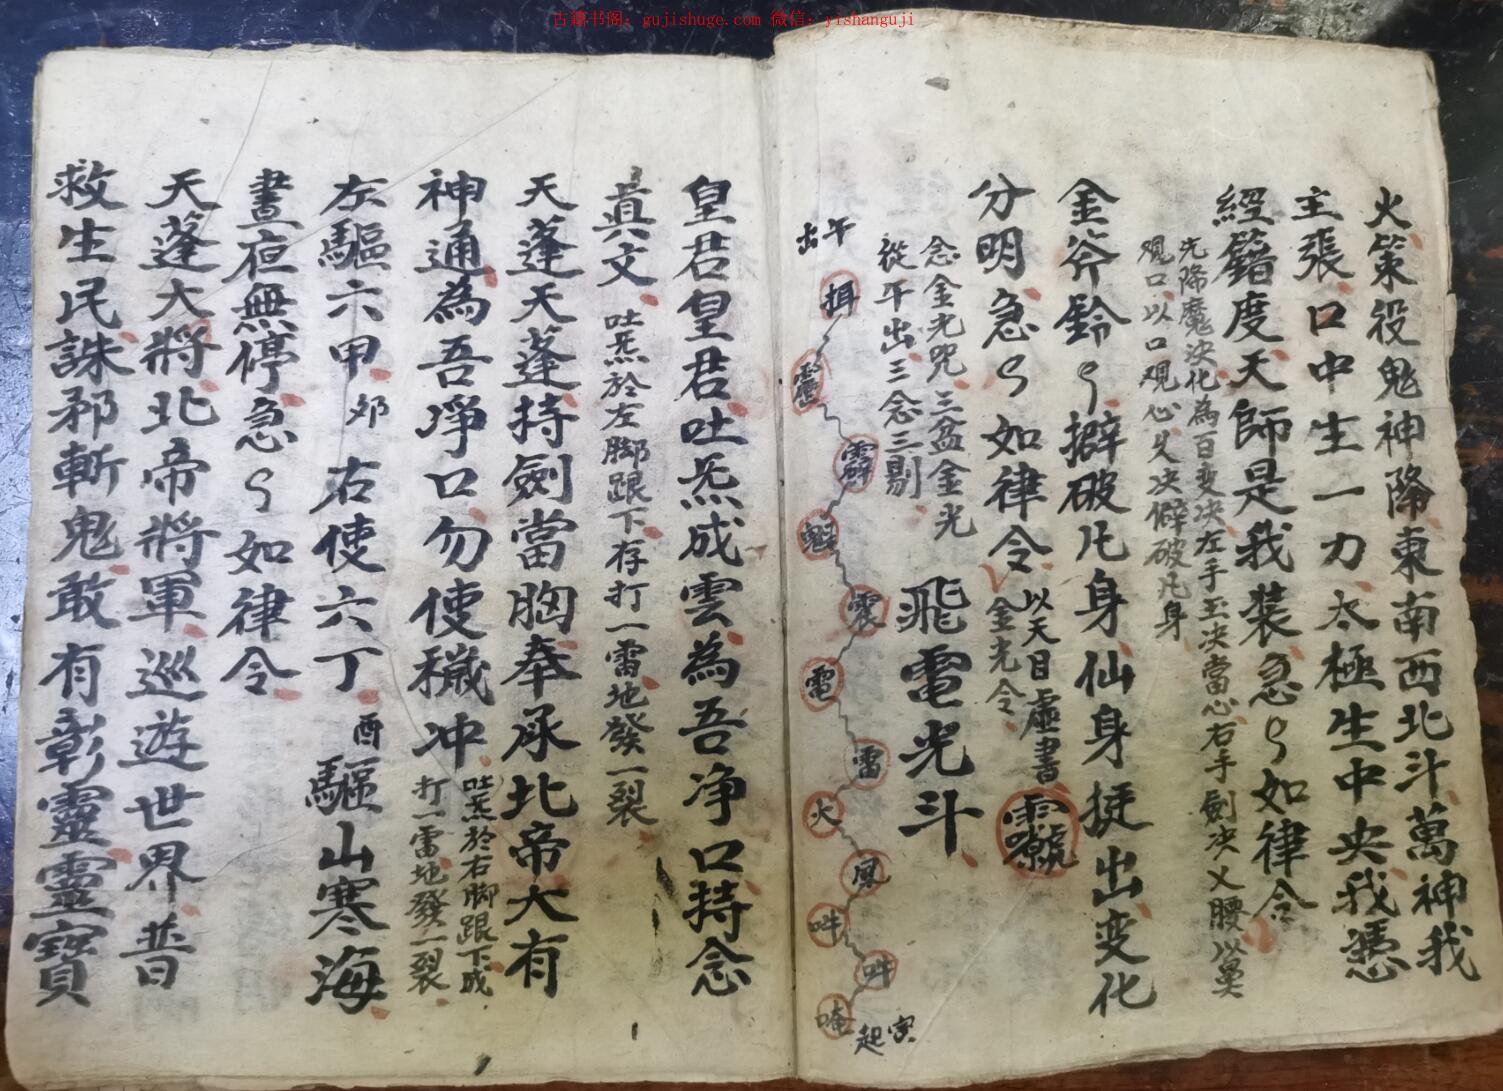 古籍书阁：gujishuge.com 微信：yishanguji
火策役鬼神降東南西北斗萬神我
主張口中生一力太極生中央我憑
經籍度天師是我装急〻如律令
光降魔决化為百变决左手玉决當心右手劍决乂腰以鼻
观口以口观心乂决僻破凡身
金斧鈴〻擗破凡身仙身挺出变化
分明急〻如律令以天目虚書
金光令
念金光咒三盆金光
從午出三念三剔
飛電光斗
午出
震
雷
雷
火
風
吽
吽
唵
寅起
皇君皇君吐炁成雲為吾净口持念
真文吐炁於左脚跟下存打一雷地發一裂
天蓬天蓬持劍當胸奉承北帝大有
神通為吾净口勿使穢冲吐炁於右脚跟下成
打一雷地發一裂
左驅六甲卯右使六丁酉驅山寒海
晝夜無停急〻如律令
天蓬大將北帝將軍巡遊世界普
救生民誅邪斬鬼敢有彰靈靈寶